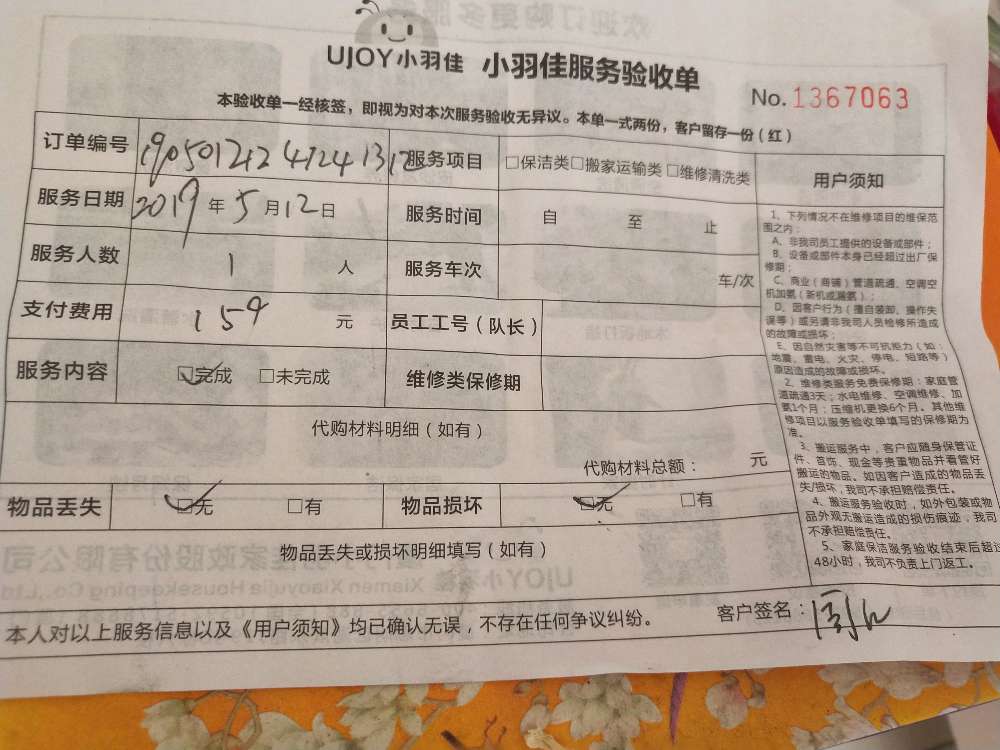 UJOY小羽佳 小羽佳服务验收单
No. 1367063
本验收单一经核签，即视为对本次服务验收无异议。本单一式两份，客户留存一份（红）
订单编号 服务项目 □保洁类□搬家运输类 □维修清洗类
服务日期 2019 年 5 月 12 日 服务时间 自 至 止
服务人数 1 人 服务车次 车/次
支付费用 159 元 员工工号（队长）
服务内容 ☑完成 □未完成 维修类保修期
代购材料明细（如有）
代购材料总额： 元
物品丢失 ☑无 □有 物品损坏 ☑无 □有
物品丢失或损坏明细填写（如有）
本人对以上服务信息以及《用户须知》均已确认无误，不存在任何争议纠纷。 客户签名：
用户须知
1、下列情况不在维修项目的维保范
围之内：
A、非我司员工提供的设备或部件；
B、设备或部件本身已经超过出厂保
修期；
C、商业（商铺）管道疏通、空调空
机加氨（新机或漏氨）；
D、因客户行为（擅自装卸、操作失
误等）或另请非我司人员检修所造成
的故障或损坏；
E、因自然灾害等不可抗拒力（如：
地震、雷电、火灾、停电、短路等）
原因造成的故障或损坏。
2、维修类服务免费保修期：家庭管
道疏通3天；水电维修、空调维修、加
氨1个月；压缩机更换6个月。其他维
修项目以服务验收单填写的保修期为
准。
3、搬运服务中，客户应随身保管证
件、首饰、现金等贵重物品并看管好
搬运的物品。如因客户造成的物品丢
失/损坏，我司不承担赔偿责任。
4、搬运服务验收时，如外包装或物
品外观无搬运造成的损伤痕迹，我司
不承担赔偿责任。
5、家庭保洁服务验收结束后超过
48小时，我司不负责上门返工。